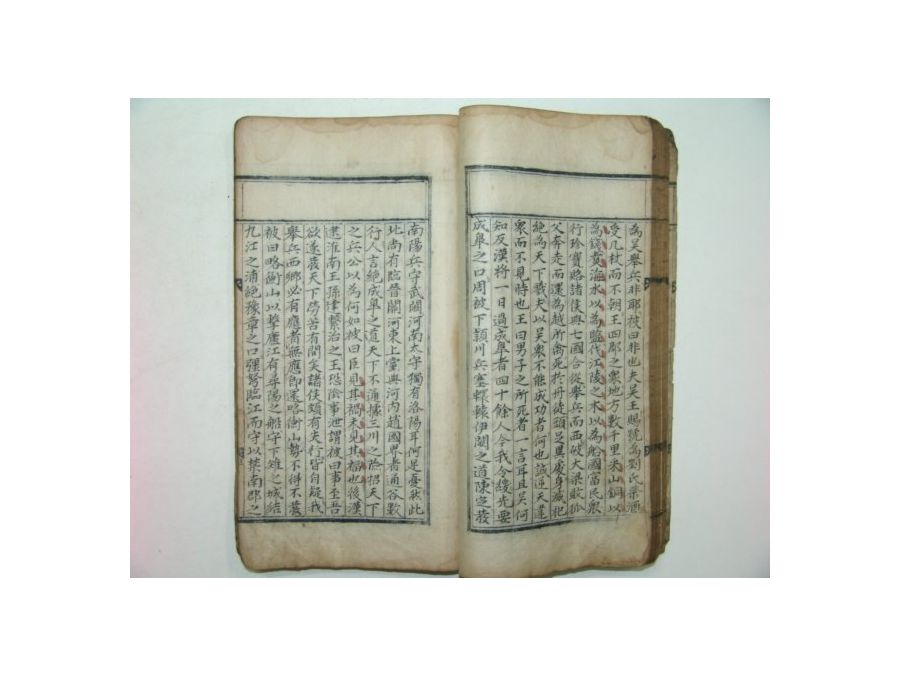 為吳舉兵非耶被曰非也夫吳王賜號為劉氏祭酒
受几杖而不朝王四郡之衆地方數千里采山銅以
為錢煑海水以為鹽伐江陵之木以為船國富民衆
行珍寶賂諸侯與七國合從舉兵而西破大梁敗狐
父奔走而還為越所禽死於丹徒頭足異處身滅祀
絶為天下戮夫以吳衆不能成功者何也誠逆天違
衆而不見時也王曰男子之所死者一言耳且吳何
知反漢將一日過成皐者四十餘人今我令緩先要
成皐之口周被下潁川兵塞轘轅伊闕之道陳定發
南陽兵守武關河南太守獨有洛陽耳何足憂然此
北尚有臨晉關河東上黨與河內趙國界者通谷數
行人言絶成皐之道天下不通據三川之險招天下
之兵公以為何如被曰臣見其禍未見其福也後漢
逮淮南王孫建繫治之王恐陰事泄謂被曰事至吾
欲遂發天下勞苦有間矣諸侯頗有失行皆自疑我
舉兵西鄉必有應者無應即還略衡山勢不得不發
被曰略衡山以擊廬江有尋陽之船守下雉之城結
九江之浦絶豫章之口彊弩臨江而守以禁南郡之